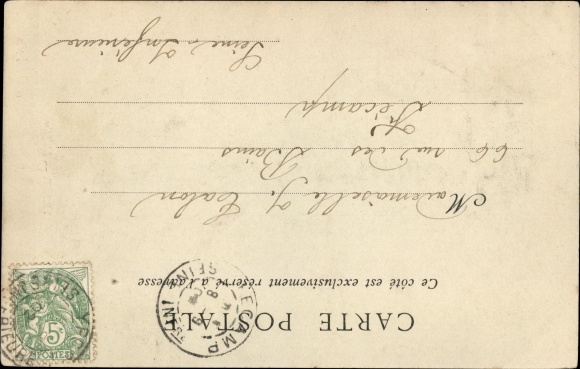 CARTE POSTALE
Ce côté est exclusivement réservé à l'adresse
Mademoiselle J. Talon
66 rue des Bains
Fécamp
Seine Inférieure
5c
POSTES